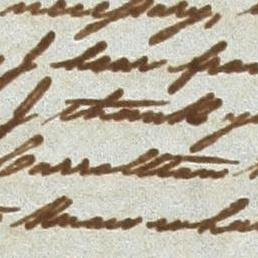 necessary,
I hear from
I thank y
Carrollton
know wha